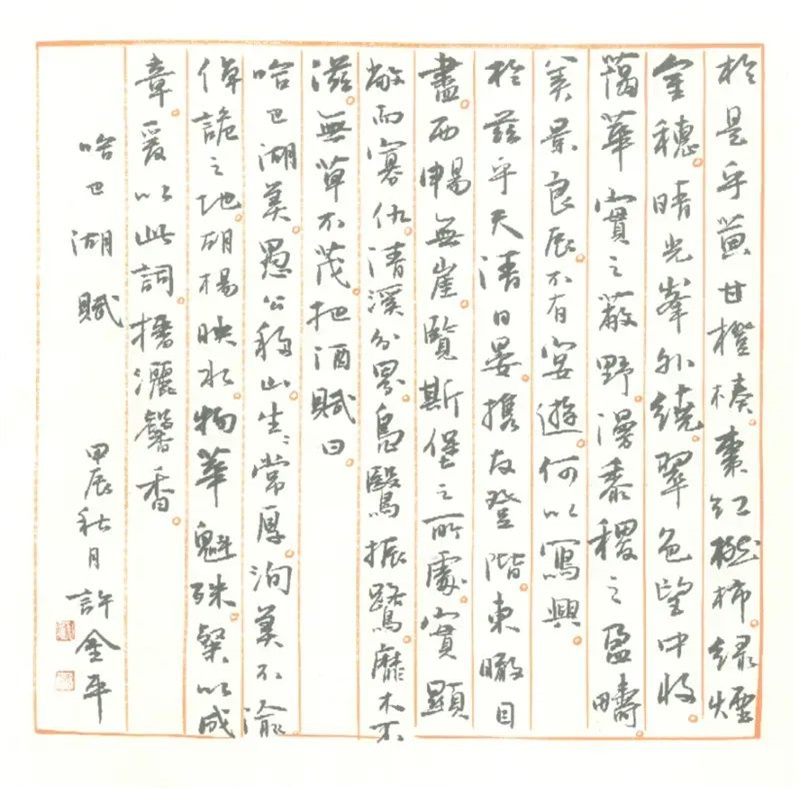 於是乎黃甘橙楱。棗紅樾柿。緑煙
金穗。晴光峯外繞。翠色望中收。
藹華實之蔽野。漫黍稷之盈疇。
美景良辰。不有宴遊。何以寫興。
於兹乎天清日晏。携友登階。東瞰目
盡。西暢無崖。覽斯堡之所處。實顯
敞而寡仇。清溪分界。鳧鷖振鷺。靡木不
滋。無草不茂。把酒賦曰。
哈巴湖美。愚公移山。生生常厚。洵美不渝。
倬詭之地。胡楊映水。物華魁殊。粲以成
章。爰以此詞。播灑馨香。
哈巴湖賦 甲辰秋月 許金平